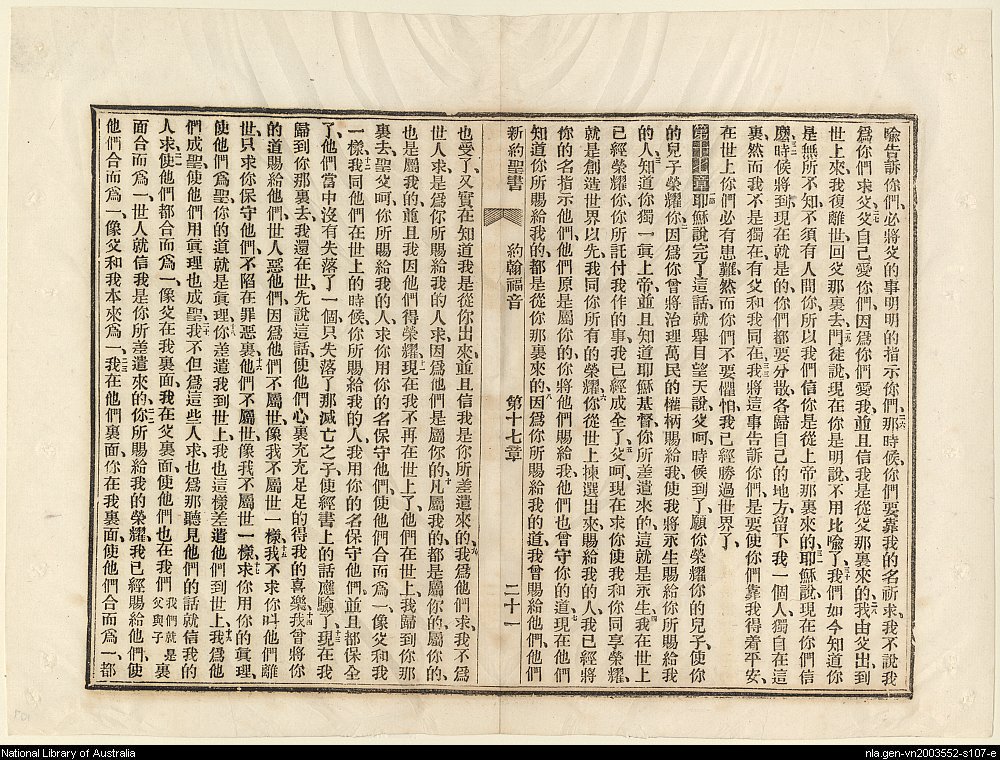 喩告訴你們、必將父的事明明的指示你們、二六那時候你們要靠我的名祈求、我不說我
爲你們求父、二七父自己愛你們、因爲你們愛我、並且信我是從父那裏來的、二八我由父出到
世上來、我復離世回父那裏去、二九門徒說、現在你是明說、不用比喩了、三十我們如今知道你
是無所不知、不須有人問你、所以我們信你是從上帝那裏來的、三一耶穌說、現在你們信
麼、三二時候將到、現在就是的、你們都要分散、各歸自己的地方、留下我一個人、獨自在這
裏、然而我不是獨在、有父和我同在、三三我將這事告訴你們、是要使你們靠我得着平安、
在世上你們必有患難、然而你們不要懼怕、我已經勝過世界了、
第十七章一耶穌說完了這話、就舉目望天說、父呵、時候到了、願你榮耀你的兒子、使你
的兒子榮耀你、二因爲你曾將治理萬民的權柄賜給我、使我將永生賜給你所賜給我
的人、三知道你獨一眞上帝、並且知道耶穌基督你所差遣來的、這就是永生、四我在世上
已經榮耀你、你所託付我作的事、我已經成全了、五父呵、現在求你使我和你同享榮耀、
就是創造世界以先、我同你所有的榮耀、六你從世上揀選出來賜給我的人、我已經將
你的名指示他們、他們原是屬你的、你將他們賜給我、他們也曾守你的道、七現在他們
知道你所賜給我的、都是從你那裏來的、八因爲你所賜給我的道、我曾賜給他們、他們
新約聖書 約翰福音 第十七章 二十一
也受了、又實在知道我是從你出來、並且信我是你所差遣來的、九我爲他們求、我不爲
世人求、是爲你所賜給我的人求、因爲他們是屬你的、十凡屬我的都是屬你的、屬你的
也是屬我的、並且我因他們得榮耀、十一現在我不再在世上了、他們在世上、我歸到你那
裏去、聖父呵、你所賜給我的人、求你用你的名保守他們、使他們合而爲一、像父和我
一樣、十二我同他們在世上的時候、你所賜給我的人、我用你的名保守他們、並且都保全
了、他們當中沒有失落了一個、只失落了那滅亡之子、使經書上的話應驗了、十三現在我
歸到你那裏去、我還在世先說這話、使他們心裏充充足足的得我的喜樂、十四我曾將你
的道賜給他們、世人惡他們、因爲他們不屬世、像我不屬世一樣、十五我不求你叫他們離
世、只求你保守他們、不陷在罪惡裏、十六他們不屬世、像我不屬世一樣、十七求你用你的眞理、
使他們爲聖、你的道就是眞理、十八你差遣我到世上、我也這樣差遣他們到世上、十九我爲他
們成聖、使他們用眞理也成聖、二十我不但爲這些人求、也爲那聽見他們的話就信我的
人求、二一使他們都合而爲一、像父在我裏面、我在父裏面、使他們也在我們我們就是父與子裏
面合而爲一、世人就信我是你所差遣來的、二二你所賜給我的榮耀、我已經賜給他們、使
他們合而爲一、像父和我本來爲一、二三我在他們裏面、你在我裏面、使他們合而爲一、都
National Library of Australia
nla.gen-vn2003552-s107-e